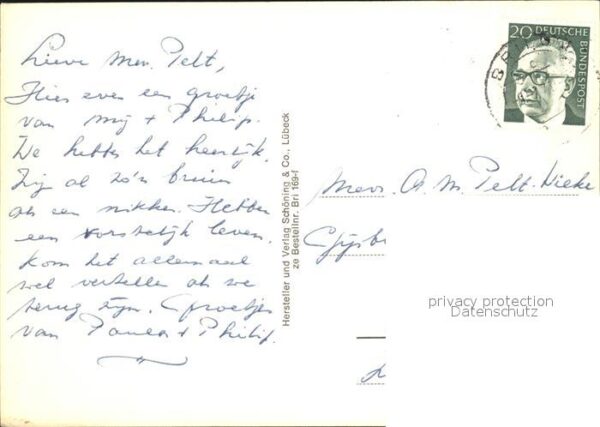 Lieve Mev. Pelt,
Hier even een groetje
van mij + Philip.
We hebben het heerlijk.
Zijn al zo'n bruin
als een nikker. Hebben
een vorstelijk leven.
Kom het allemaal
wel vertellen als we
terug zijn. Groetjes
van Paula + Philip.
Hersteller und Verlag Schöning & Co.; Lübeck
ze Bestellnr. Bri 169-f
20 DEUTSCHE
BUNDESPOST
Mevr. A. M. Pelt.
Gijsb
privacy protection
Datenschutz